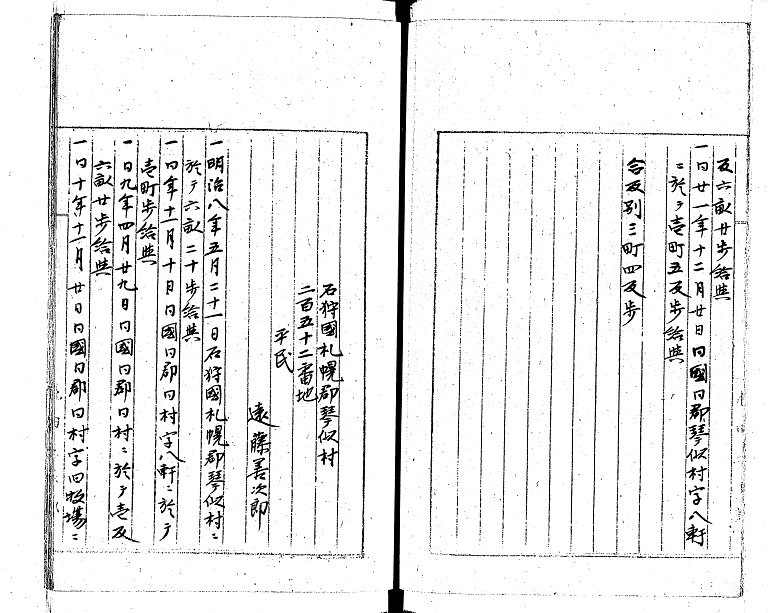 反六畝廿歩給與
一同廿一年十二月廿日同國同郡琴似村字八軒
ニ於テ壱町五反歩給與
合反別三町四反歩
石狩國札幌郡琴似村
二百五十二番地
平民
遠藤善次郎
一明治八年五月二十一日石狩國札幌郡琴似村ニ
於テ六畝二十歩給與
一同年十一月十日同國同郡同村字八軒ニ於テ
壱町歩給與
一同九年四月廿九日同國同郡同村ニ於テ壱反
六畝廿歩給與
一同十年十一月廿日同國同郡同村字旧牧場ニ